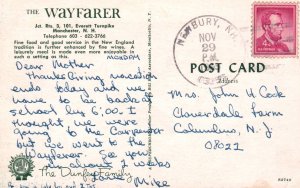 THE WAYFARER
Jct. Rts. 3, 101, Everett Turnpike
Manchester, N. H.
Telephone 603 - 622-3766
Fine food and good service in the New England
tradition is further enhanced by fine wines. A
leisurely meal is made even more enjoyable in
such a setting as this.
MONDAY
Dear Mother
Thanksgiving vacation
ends today and we
have to be back at
school by 6:00. I
thought we were
going to the Carpenter
but we went to the
Wayfarer. See you
in about 2 weeks
Love Mike
The Dunfey Family
NOV
29
P.M.
POST CARD
Address
Mrs. John H Cook
Cloverdale Farm
Columbus, N.J.
08021